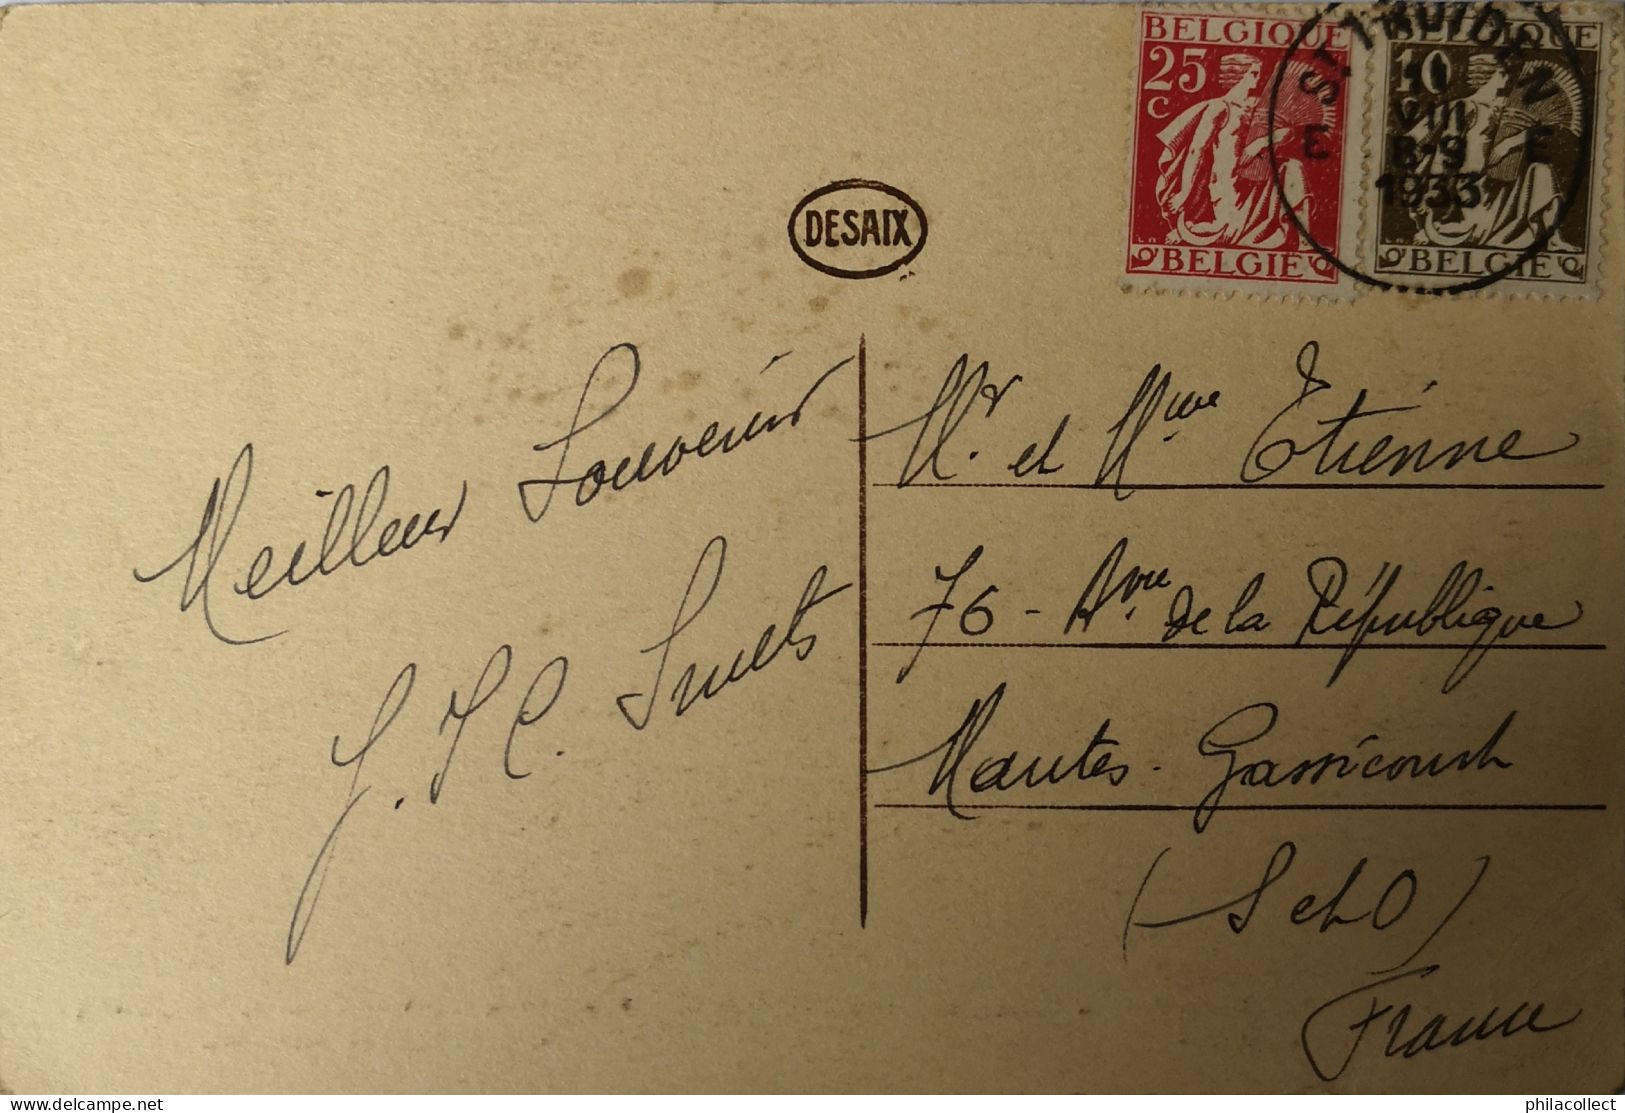 BELGIQUE
25
C
BELGIE
BELGIQUE
10
BELGIE
ST TRUIDEN
VIII
8-9
1933
E E
DESAIX
Meilleur Souvenir
J. Smets
Mr. et Mme Etienne
76 - Avue de la République
Mantes - Gassicourt
(S et O)
France
philacollect